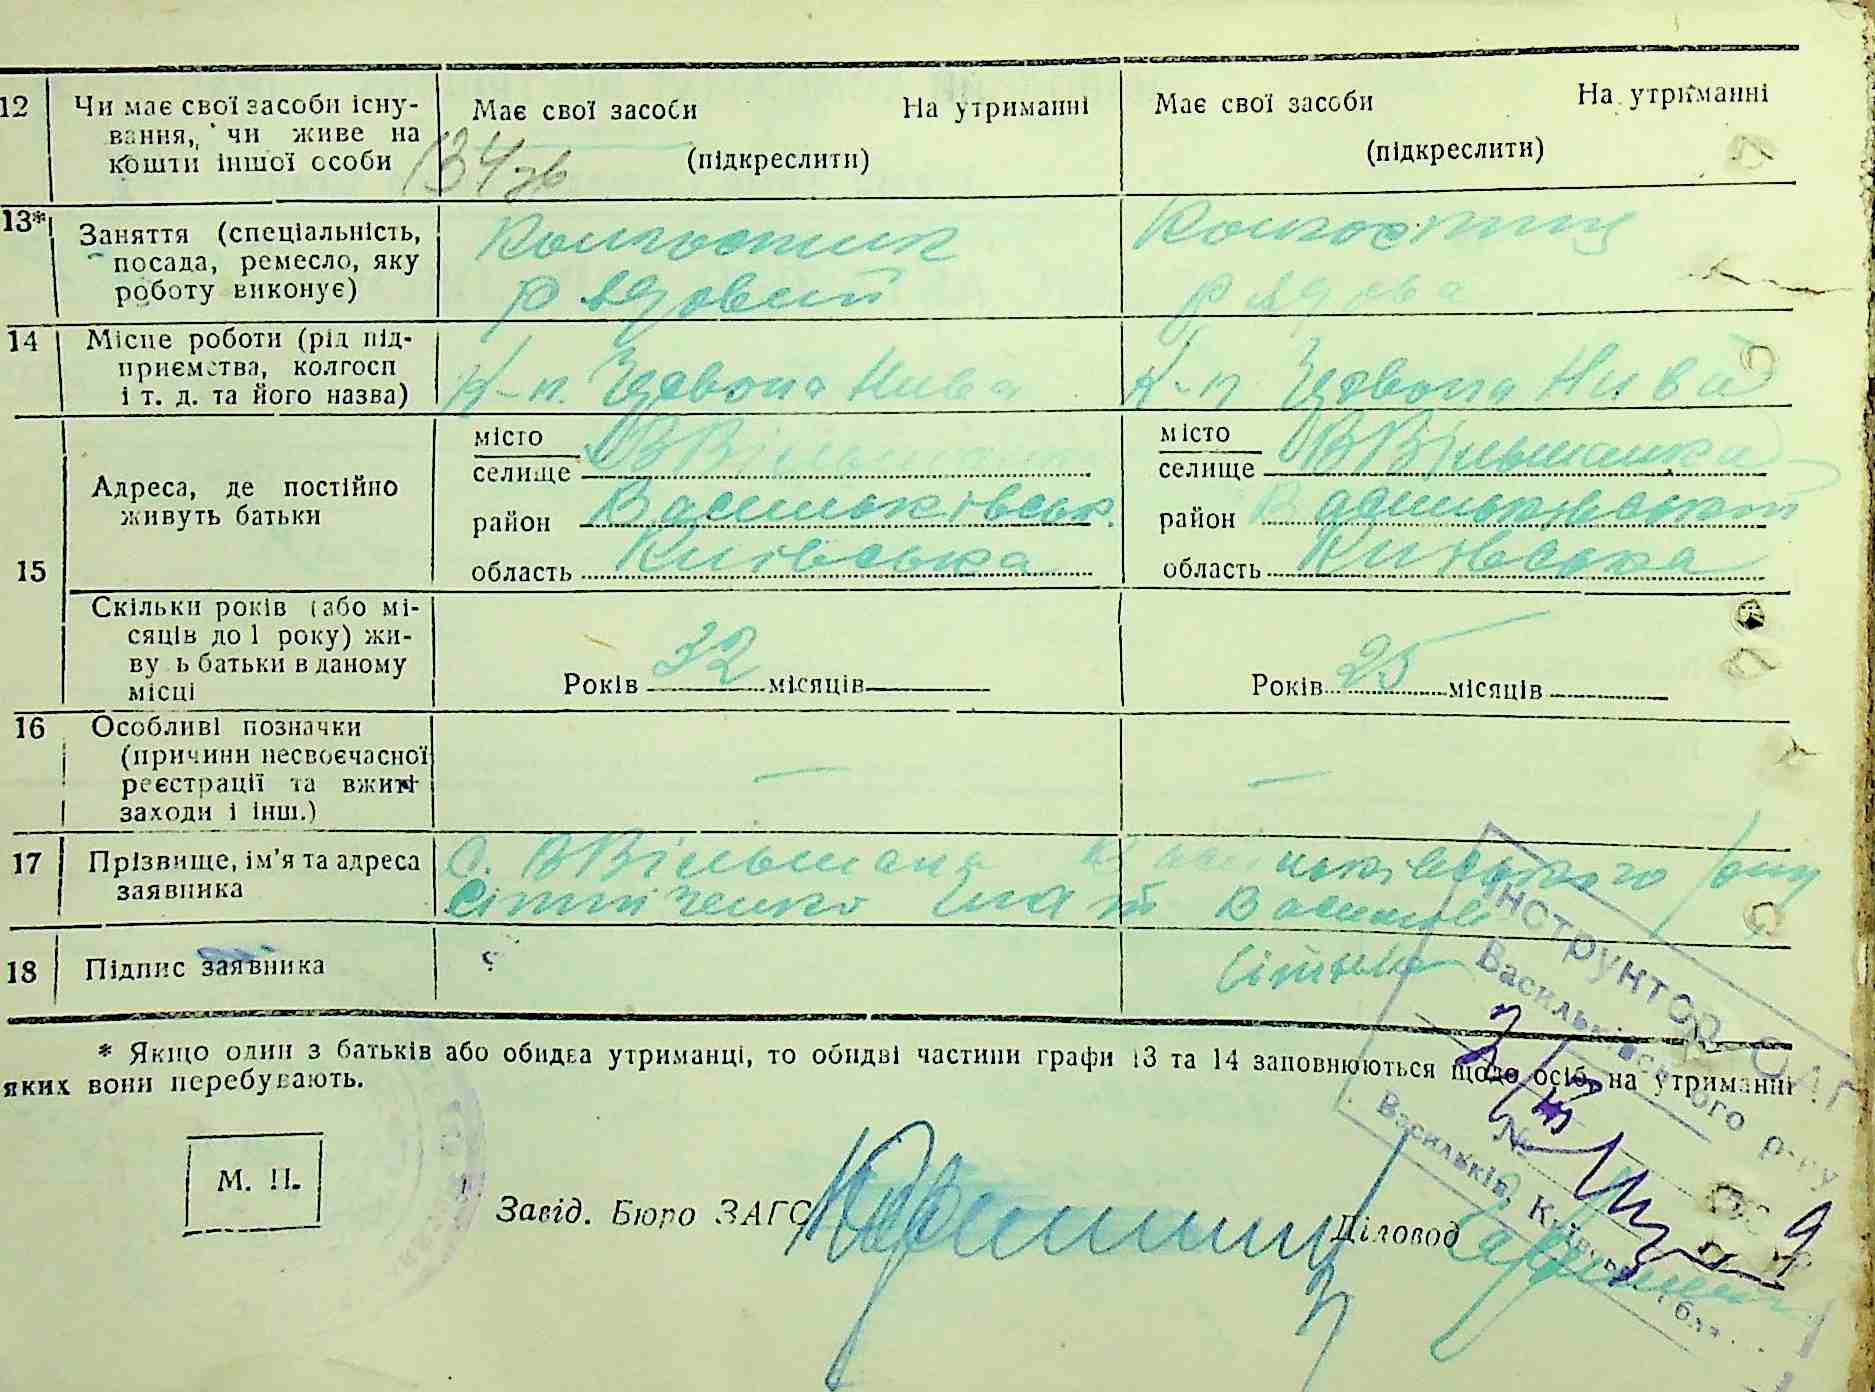 12 Чи має свої засоби існу- Має свої засоби На утриманні Має свої засоби На утриманні
вання, чи живе на
кошти іншої особи (підкреслити) (підкреслити)
13* Заняття (спеціальність, Колгоспник Колгоспниц
посада, ремесло, яку
роботу виконує) Рядовий Рядова
14 Місце роботи (рід під-
приємства, колгосп
і т. д. та його назва) К-п. Червона Нива К-п Червона Нива
місто місто
селище В Вільшанка селище В Вільшанка
Адреса, де постійно
живуть батьки район Васильківськ. район Васильківський
15 область Київська область Київська
Скільки років (або мі-
сяців до 1 року) жи-
ву ь батьки в даному
місці Років 32 місяців Років 25 місяців
16 Особливі позначки
(причини несвоєчасної
реєстрації та вжиті
заходи і інш.) — —
17 Прізвище, ім'я та адреса С. В Вільшана
заявника
18 Підпис заявника
* Якщо один з батьків або обидва утриманці, то обидві частини графи 13 та 14 заповнюються щодо осіб, на утриманні
яких вони перебувають.
М. П.
Завід. Бюро ЗАГС Діловод
Інструктор ЗАГС
Васильківського р-ну
№
Васильків, Київської обл.